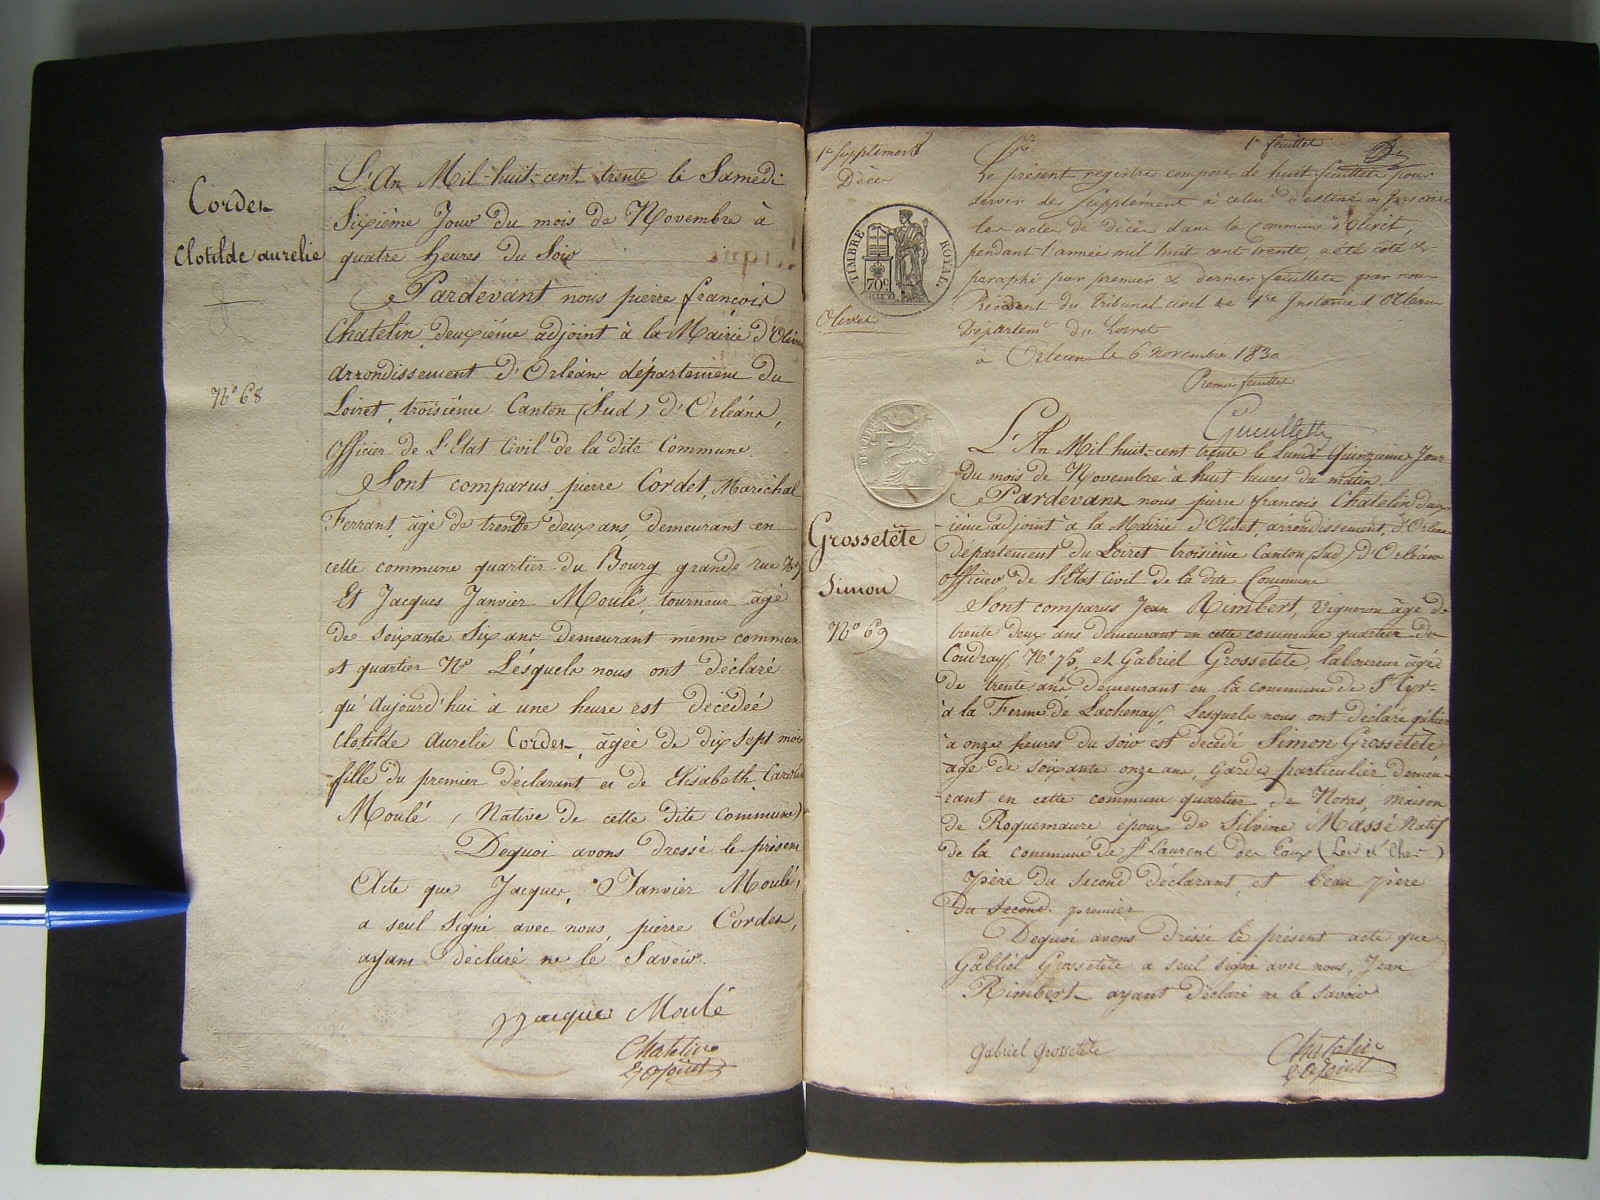 Cordet
Clotilde aurelie
N° 68
L'An Mil-huit-cent-trente le Samedi
Sixième Jour du mois de Novembre à
quatre heures du Soir
Pardevant nous pierre françois
Chatelin, deuxième adjoint à la Mairie d'Olivet
arrondissement d'Orléans département du
Loiret, troisième Canton (Sud) d'Orléans,
Officier de L'Etat Civil de la dite Commune.
Sont comparus, pierre Cordet, Maréchal
Ferrant, âgé de trente deux ans, demeurant en
cette commune quartier du Bourg grande rue N°
Et Jacques Janvier Moulé, tourneur âgé
de soixante Six ans demeurant meme commune
et quartier N° Lesquels nous ont déclaré
qu'aujourd'hui à une heure est décédée
Clotilde Aurelie Cordet, âgée de dix sept mois
fille du premier déclarant et de Elisabeth Caroline
Moulé, Native de cette dite commune
Dequoi avons dressé le présent
Acte que Jacques, Janvier Moulé,
a seul Signé avec nous, pierre Cordet,
ayant déclaré ne le Savoir.
Jacques Moulé
Chatelin
adjoint
1er Supplément
Décès
TIMBRE ROYAL
70c
Olivet
1er feuillet
Le présent registre composé de huit feuillets, pour
servir de Supplément à celui destiné à Inscrire
les actes de Décès dans la Commune d'Olivet,
pendant l'année mil huit cent trente, a été coté &
paraphé par premier & dernier feuillets par nous
Président du Tribunal civil de 1re Instance d'Orléans
Départemt du Loiret
à Orléans le 6 Novembre 1830
Premier feuillet
Grossetête
Simon
N° 69
L'An Mil huit-cent trente le Lundi Quinzième Jour
du mois de Novembre à huit heures du matin.
Pardevant nous pierre françois Chatelin deux-
-ième adjoint à la Mairie d'Olivet, arrondissement, d'Orléans
département du Loiret troisième Canton (Sud) d'Orléans
officier de l'Etat Civil de la dite Commune
Sont comparus Jean Rimbert, Vigneron âgé de
trente deux ans demeurant en cette commune quartier du
Coudray, N° 75, et Gabriel Grossetête, laboureur âgé
de trente ans demeurant en la commune de St Cyr-
à la Ferme de Lachenay, Lesquels nous ont déclaré qu'hier
à onze heures du soir est décédé Simon Grossetête
agé de soixante onze ans, Garde particulier demeu-
-rant en cette commune quartier de Noras, maison
de Roquemaure époux de Silvine Massé Natif
de la commune de St Laurent des Eaux (Loir et Cher)
père du second déclarant, et beau père
du second premier
Dequoi avons dressé le présent acte que
Gabliel Grossetete a seul signé avec nous, Jean
Rimbert ayant déclaré ne le savoir
Gabriel Grossetete
Chatelin
adjoint